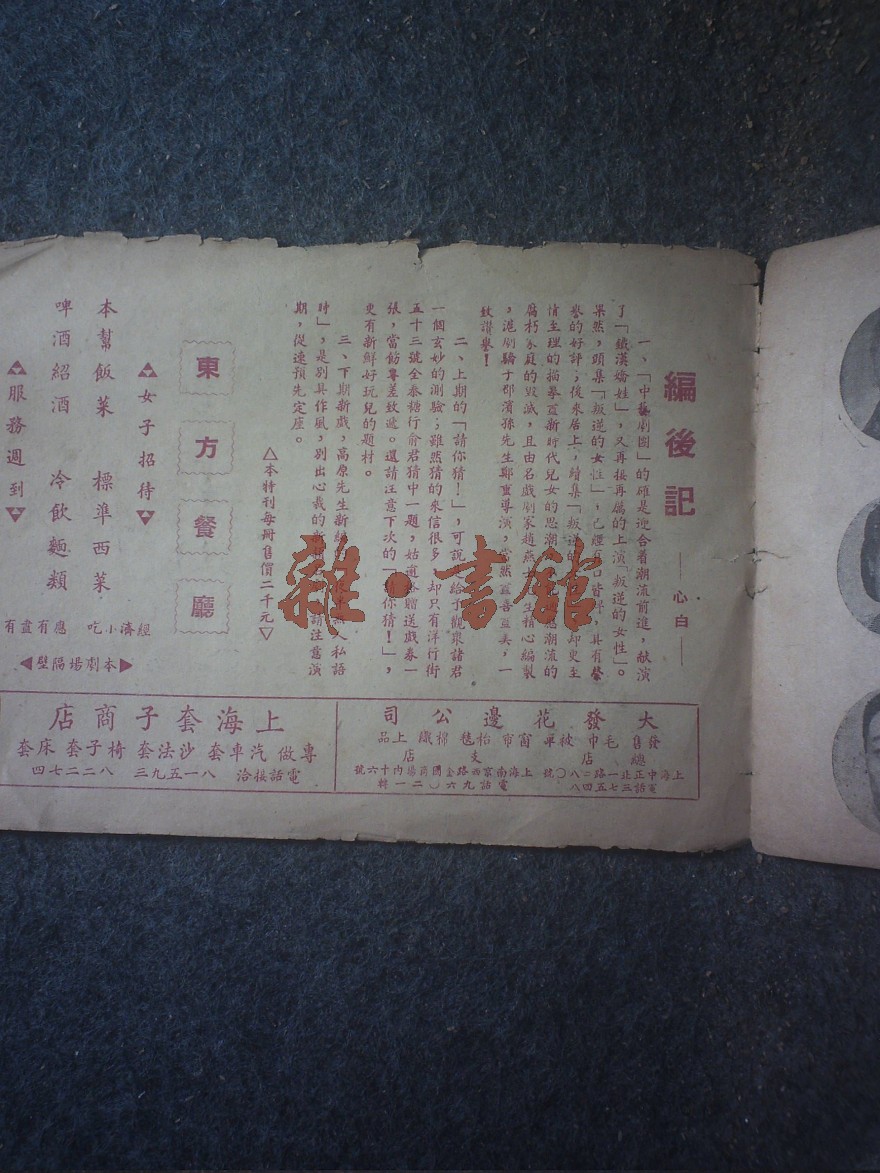 編後記
——心白——
一、「中藝劇團」的確是迎合着潮流前進，献演
了「鐵漢嬌娃」，又再接再厲的上演「叛逆的女性」。
果然，頭集「叛逆的女性」，已經
譽的好評；後來居上，續集「叛逆的 却更主
情主理的描摹並新時代兒女的思潮 潮流的
腐朽家庭的毁滅，且由名戲劇家趙燕 生精心編製
，滬劇驕子邵濱孫先生鄭重導演，當然盡善盡美，一
致讚譽！
二、上期的「請你猜！」，可說是給了觀衆諸君
一個玄妙的測驗；雖然猜的來信很多，却只有洋行街
五十三號全泰糖行俞君猜中一題，姑 贈送戲券一
張，當飭專差致遞。還請注意下次的「請你猜！」，
更有新鮮好玩兒的題材。
三、下期新戲，高原先生新 人私語
時」，是別具作風，別出心裁的 請注意演
期，從速預先定座。
△本特刊每冊售價二千元▽
東方餐廳
女子招待
本幫飯菜 標準西菜
啤酒紹酒 冷飲麵類
服務週到
經濟小吃 應有盡有
本劇場隔壁
大發花邊公司
發售 毛巾 被單 窗帘 枱毯 棉織上品
總店 支店
上海中正北一路二八〇號
電話三七五四八
上海南京西路金國商場內十六號
電話九六〇二一轉
上海套子商店
專做 汽車套 沙法套 椅子套 床套
電話接洽 八一五九三 八二二七四
雜·書館